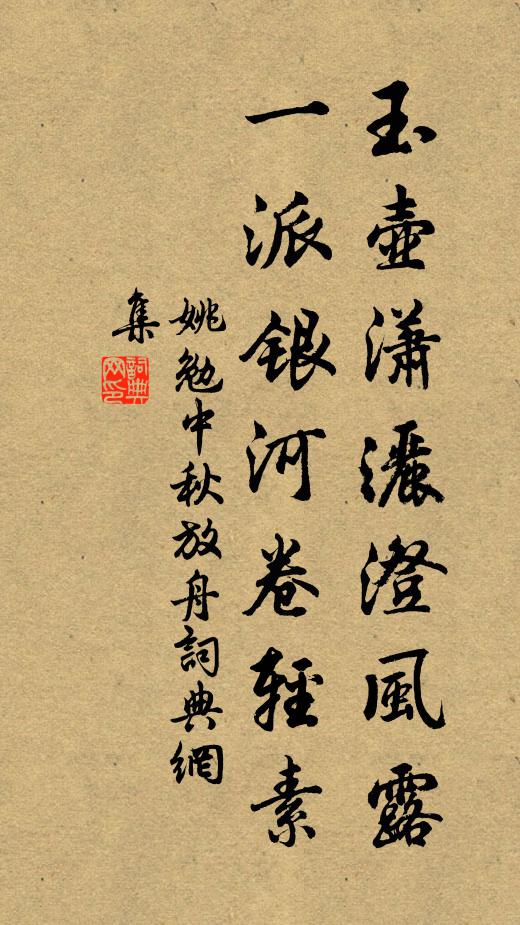 玉壺瀟灑澄風露
一派銀河卷輕素
姚勉中秋放舟詞典網
集
詞典
网印